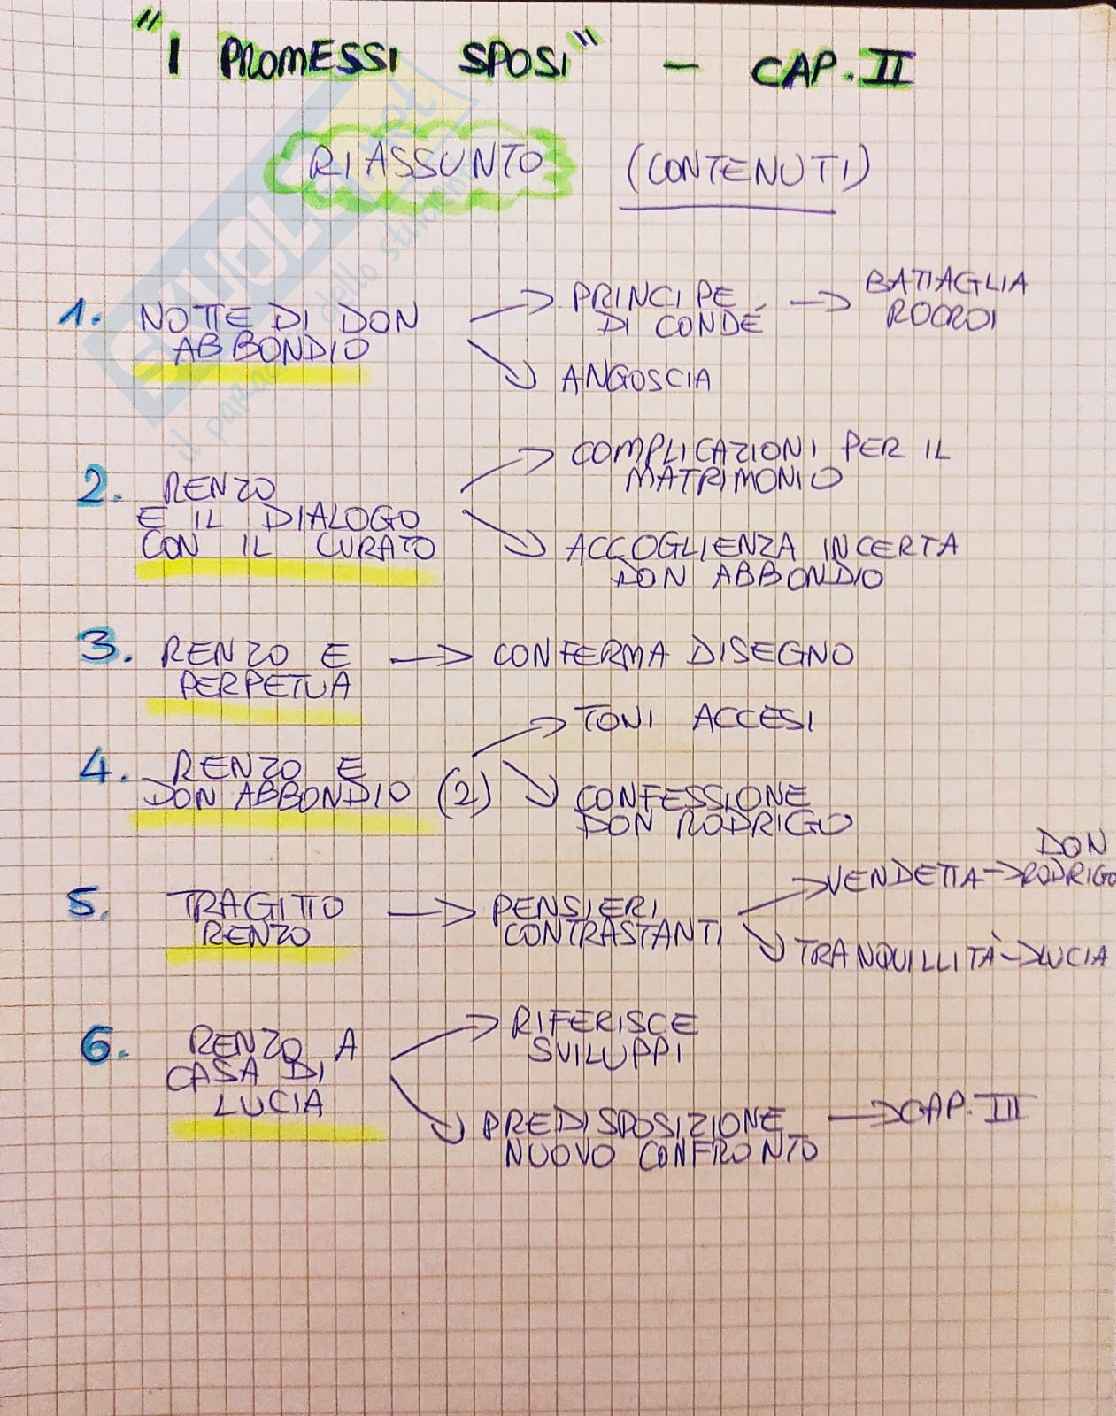 "I PROMESSI SPOSI" - CAP. II
RIASSUNTO (CONTENUTI)
1. NOTTE DI DON ABBONDIO
→ PRINCIPE DI CONDÉ → BATTAGLIA ROCROI
→ ANGOSCIA
2. RENZO
E IL DIALOGO
CON IL CURATO
→ COMPLICAZIONI PER IL
MATRIMONIO
→ ACCOGLIENZA INCERTA
DON ABBONDIO
3. RENZO E
PERPETUA
→ CONFERMA DISEGNO
4. RENZO E
DON ABBONDIO (2)
→ TONI ACCESI
→ CONFESSIONE
DON RODRIGO
5. TRAGITTO
RENZO
→ PENSIERI
CONTRASTANTI
→ VENDETTA → DON RODRIGO
→ TRANQUILLITÀ → LUCIA
6. RENZO A
CASA DI
LUCIA
→ RIFERISCE
SVILUPPI
→ PREDISPOSIZIONE
NUOVO CONFRONTO
→ CAP. III